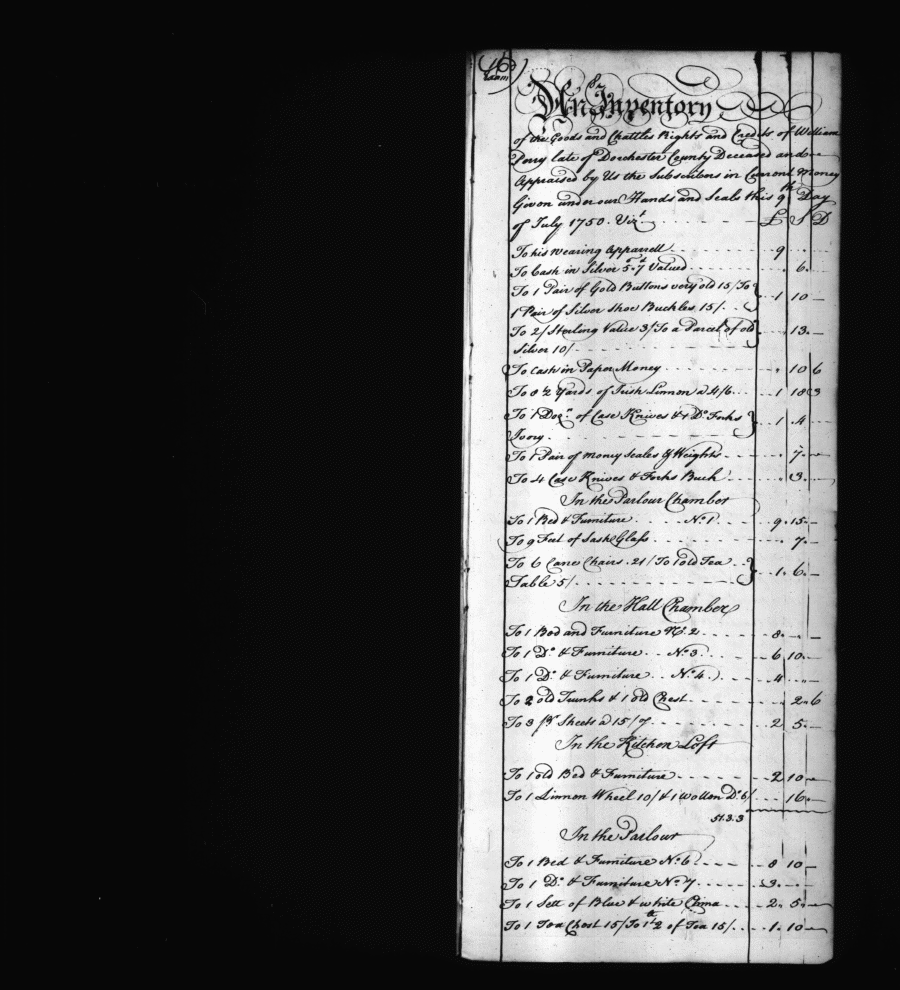 An Inventory
of the Goods and Chattles Rights and Credits of William
Perry late of Dorchester County Deceased and
Appraised by Us the Subscribers in Current Money
Given under our Hands and Seals this 9th Day
of July 1750. Vizt £ S D
To his Wearing Apparrell 9
To Cash in Silver Valued 6
To 1 Pair of Gold Buttons very old 15/ To
1 Pair of Silver Shoe Buckles 15/ 1 10 —
To 2/ Sterling Value 3/ To a Parcel of old
Silver 10/ 13 —
To Cash in Paper Money 10 6
To 8½ Yards of Irish Linnon a 4/6 1 18 3
To 1 Dozn. of Case Knives & 1 Do. Forks
Ivory 1 4
To 1 Pair of Money Scales & Weights 7 —
To 4 Case Knives & Forks Buck 3 —
In the Parlour Chamber
To 1 Bed & Furniture No. 1 9 15 —
To 9 Feet of Sash Glass 7 —
To 6 Cane Chairs 21/ To 1 old Tea
Table 5/ 1 6 —
In the Hall Chamber
To 1 Bed and Furniture No. 2 8 — —
To 1 Do. & Furniture No. 3 6 10 —
To 1 Do. & Furniture No. 4 4 — —
To 2 old Trunks & 1 old Chest 2 6
To 3 pr Sheets a 15/ 2 5 —
In the Kitchen Loft
To 1 old Bed & Furniture 2 10 —
To 1 Linnon Wheel 10/ & 1 Wollen Do. 6/ 16 —
51.3.3
In the Parlour
To 1 Bed & Furniture No. 6 8 10 —
To 1 Do. & Furniture No. 7 3
To 1 Sett of Blue & white China 2 5 —
To 1 Tea Chest 15/ To 1 lb ½ of Tea 15/ 1 10 —